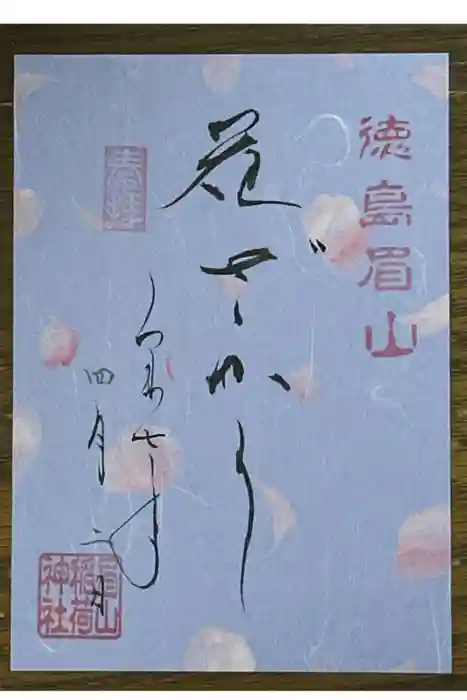 徳島眉山
花ざかり
奉拝
令和七年
四月二日
眉山
稲荷
神社